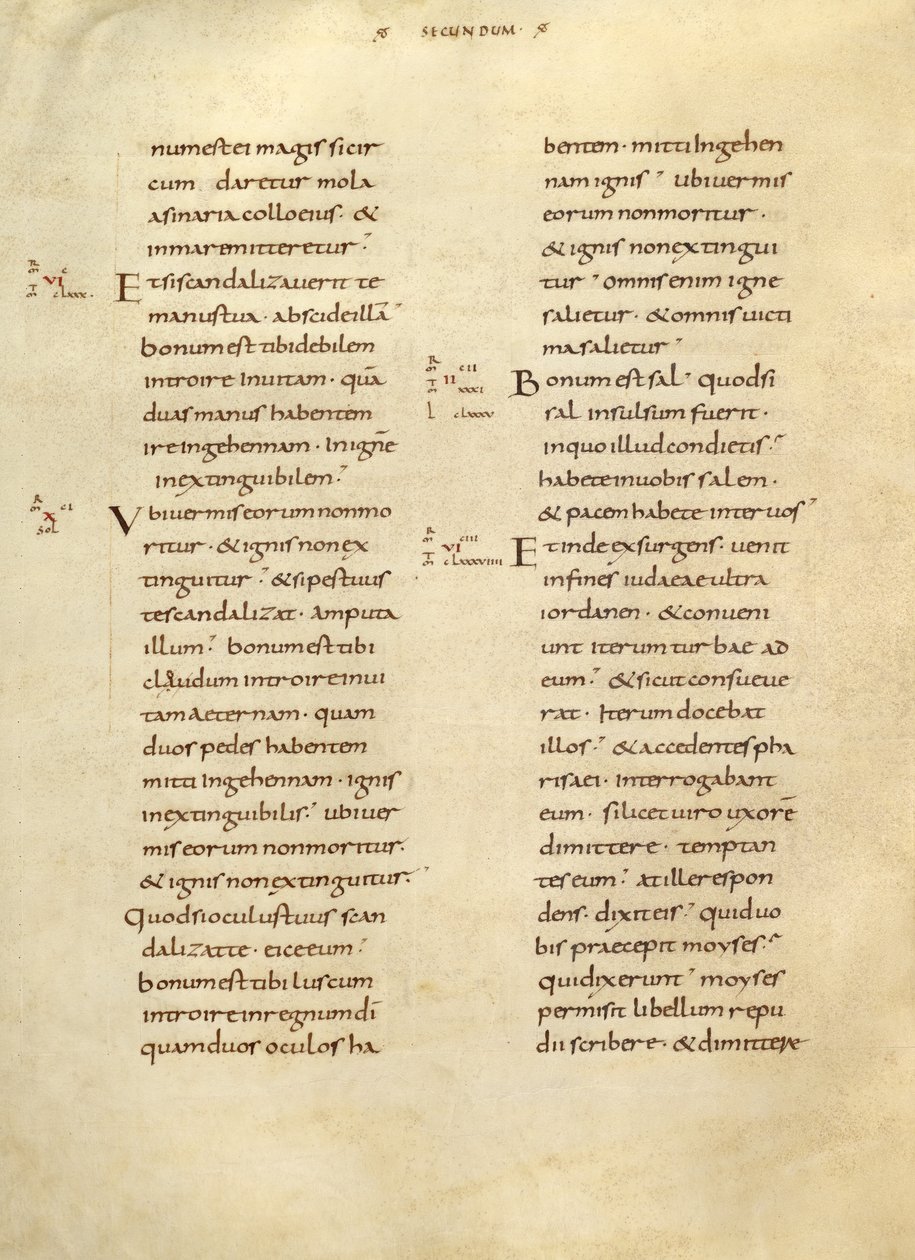 SECUNDUM·
numesteimagissicir
cum daretur mola
asinariacolloeius· &
inmaremitteretur
R
M VI C
T
M CLXXX·
Etsiscandalizaverit te
manustua· abscideillā
bonumesttibidebilem
introire Invitam· quā
duasmanus habentem
ireIngehennam· Inignē
inextinguibilem
R
M X CI
SOL
Vbivermiseorumnonmo
ritur· &ignisnonex
tinguitur &sipestuus
tescandalizat· Amputa
illum bonumesttibi
claudum introireinui
tamAeternam· quam
duospedes habentem
mitti Ingehennam· ignis
inextinguibilis ubiver
miseorumnonmoritur·
& ignisnonextinguitur·
Quodsioculustuus scan
dalizatte· eiceeum
bonumesttibi luscum
introireinregnumdī
quamduos oculos ha
bentem· mittiIngehen
namignis ubivermis
eorumnonmoritur·
&ignis nonextingui
tur omnisenim igne
salietur· &omnisvicti
masalietur
R
M CII
T II
M XXXI
L CLXXXV
Bonumestsal quodsi
sal insulsum fuerit·
inquoilludcondietis
habeteinvobissalem·
&pacemhabete intervos
R
M CIII
T VI
M CLXXXVIIII
Etindeexsurgens· venit
infines iudaeaeultra
iordanen· &conveni
unt iterumturbae ad
eum &sicutconsueve
rat· Iterumdocebat
illos &accedentespha
risaei· interrogabant
eum· silicetviro uxorē
dimittere· temptan
teseum atillerespon
dens· dixiteis quiduo
bis praecepit moyses
quidixerunt moyses
permisit libellum repu
diiscribere· &dimittere